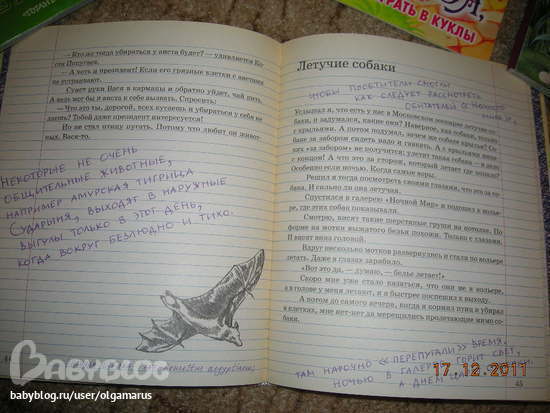 ИГРАТЬ В КУКЛЫ
— Кто же тогда убираться у аиста будет? — удивляется Ко-
стя Попугаев.
— А хоть и президент! Если его грязные клетки с аистами
не устраивают.
Сунет руки Вася в карманы и обратно уйдет, чай пить.
А ведь мог бы и аиста к себе вызвать. Спросить:
— Что это ты, дорогой, всех кусаешь и убираться у себя не
даешь? Тобой даже президент интересуется!
Но не стал птицу пугать. Потому что любит он живот-
ных. Вася-то.
НЕКОТОРЫЕ НЕ ОЧЕНЬ
ОБЩИТЕЛЬНЫЕ ЖИВОТНЫЕ,
НАПРИМЕР АМУРСКАЯ ТИГРИЦА
СУДАРЫНЯ, ВЫХОДЯТ В НАРУЖНЫЕ
ВЫГУЛЫ ТОЛЬКО В ЭТОТ ДЕНЬ,
КОГДА ВОКРУГ БЕЗЛЮДНО И ТИХО.
Летучие собаки
ЧТОБЫ ПОСЕТИТЕЛИ СМОГЛИ
КАК СЛЕДУЕТ РАССМОТРЕТЬ
ОБИТАТЕЛЕЙ «НОЧНОГО
МИРА»,
Услышал я, что есть у нас в Московском зоопарке летучие со-
баки, и задумался, какие они? Наверное, как собаки, только
с крыльями. А потом подумал, зачем им собаке крылья? Со-
баке за забором сидеть надо и гавкать. А с крыльями просто
«за забором» не получится: улетит такая собака — и дело
с концом! А что это за сторож, который летает где попало?
Особенно если ночью. Когда самые воры.
Решил я тогда посмотреть своими глазами, что это за со-
баки. И сильно ли они летучие.
Спустился в галерею «Ночной Мир» и подошел к воль-
ере, где этих собак показывали.
Смотрю, висят такие шерстяные груши на потолке. По
форме на мотки вымытого белья похожи. Только с глазами.
И висят вниз головой.
Вдруг несколько мотков развернулись и стали по вольере
летать. Даже в глазах зарябило.
«Вот это да, — думаю, — белье летает!»
Скоро мне уже стало казаться, что они не в вольере,
а в голове у меня летают, и я быстрее поспешил к выходу.
А потом до самого вечера, когда я кормил пчел и убирал
в клетках, мне нет-нет да мерещились пролетающие мимо со-
баки.
ТАМ НАРОЧНО «ПЕРЕПУТАЛИ» ВРЕМЯ.
НОЧЬЮ В ГАЛЕРЕЕ ГОРИТ СВЕТ,
А ДНЕМ
45
17.12.2011
BABYBLOG
babyblog.ru/user/olgamarus